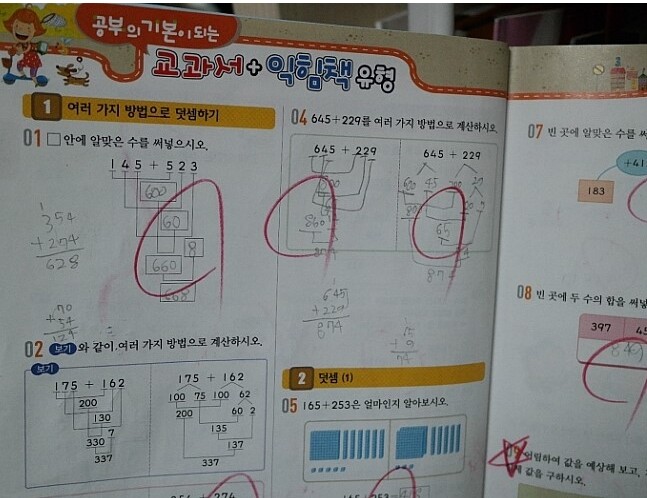 공부의 기본이 되는
교과서+익힘책 유형
1 여러 가지 방법으로 덧셈하기
01 □ 안에 알맞은 수를 써넣으시오.
145+523
600
60
8
660
668
354
+274
628
70
+54
124
02 보기 와 같이 여러 가지 방법으로 계산하시오.
보기
175 + 162
200
130
7
330
337
175 + 162
100 75 100 62
200 60 2
135
137
337
354 + 274
04 645+229를 여러 가지 방법으로 계산하시오.
645 + 229
645 + 229
45
65
874
645
+229
874
2 덧셈 (1)
05 165+253은 얼마인지 알아보시오.
165+253
07 빈 곳에 알맞은 수를 써
+41
183
08 빈 곳에 두 수의 합을 써넣
397 45
값을 예상해 보고,
값을 구하시오.
3